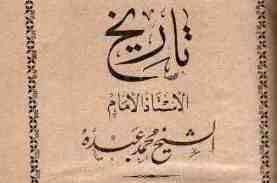 تاريخ
الاستاذ الامام
الشيخ محمد عبده